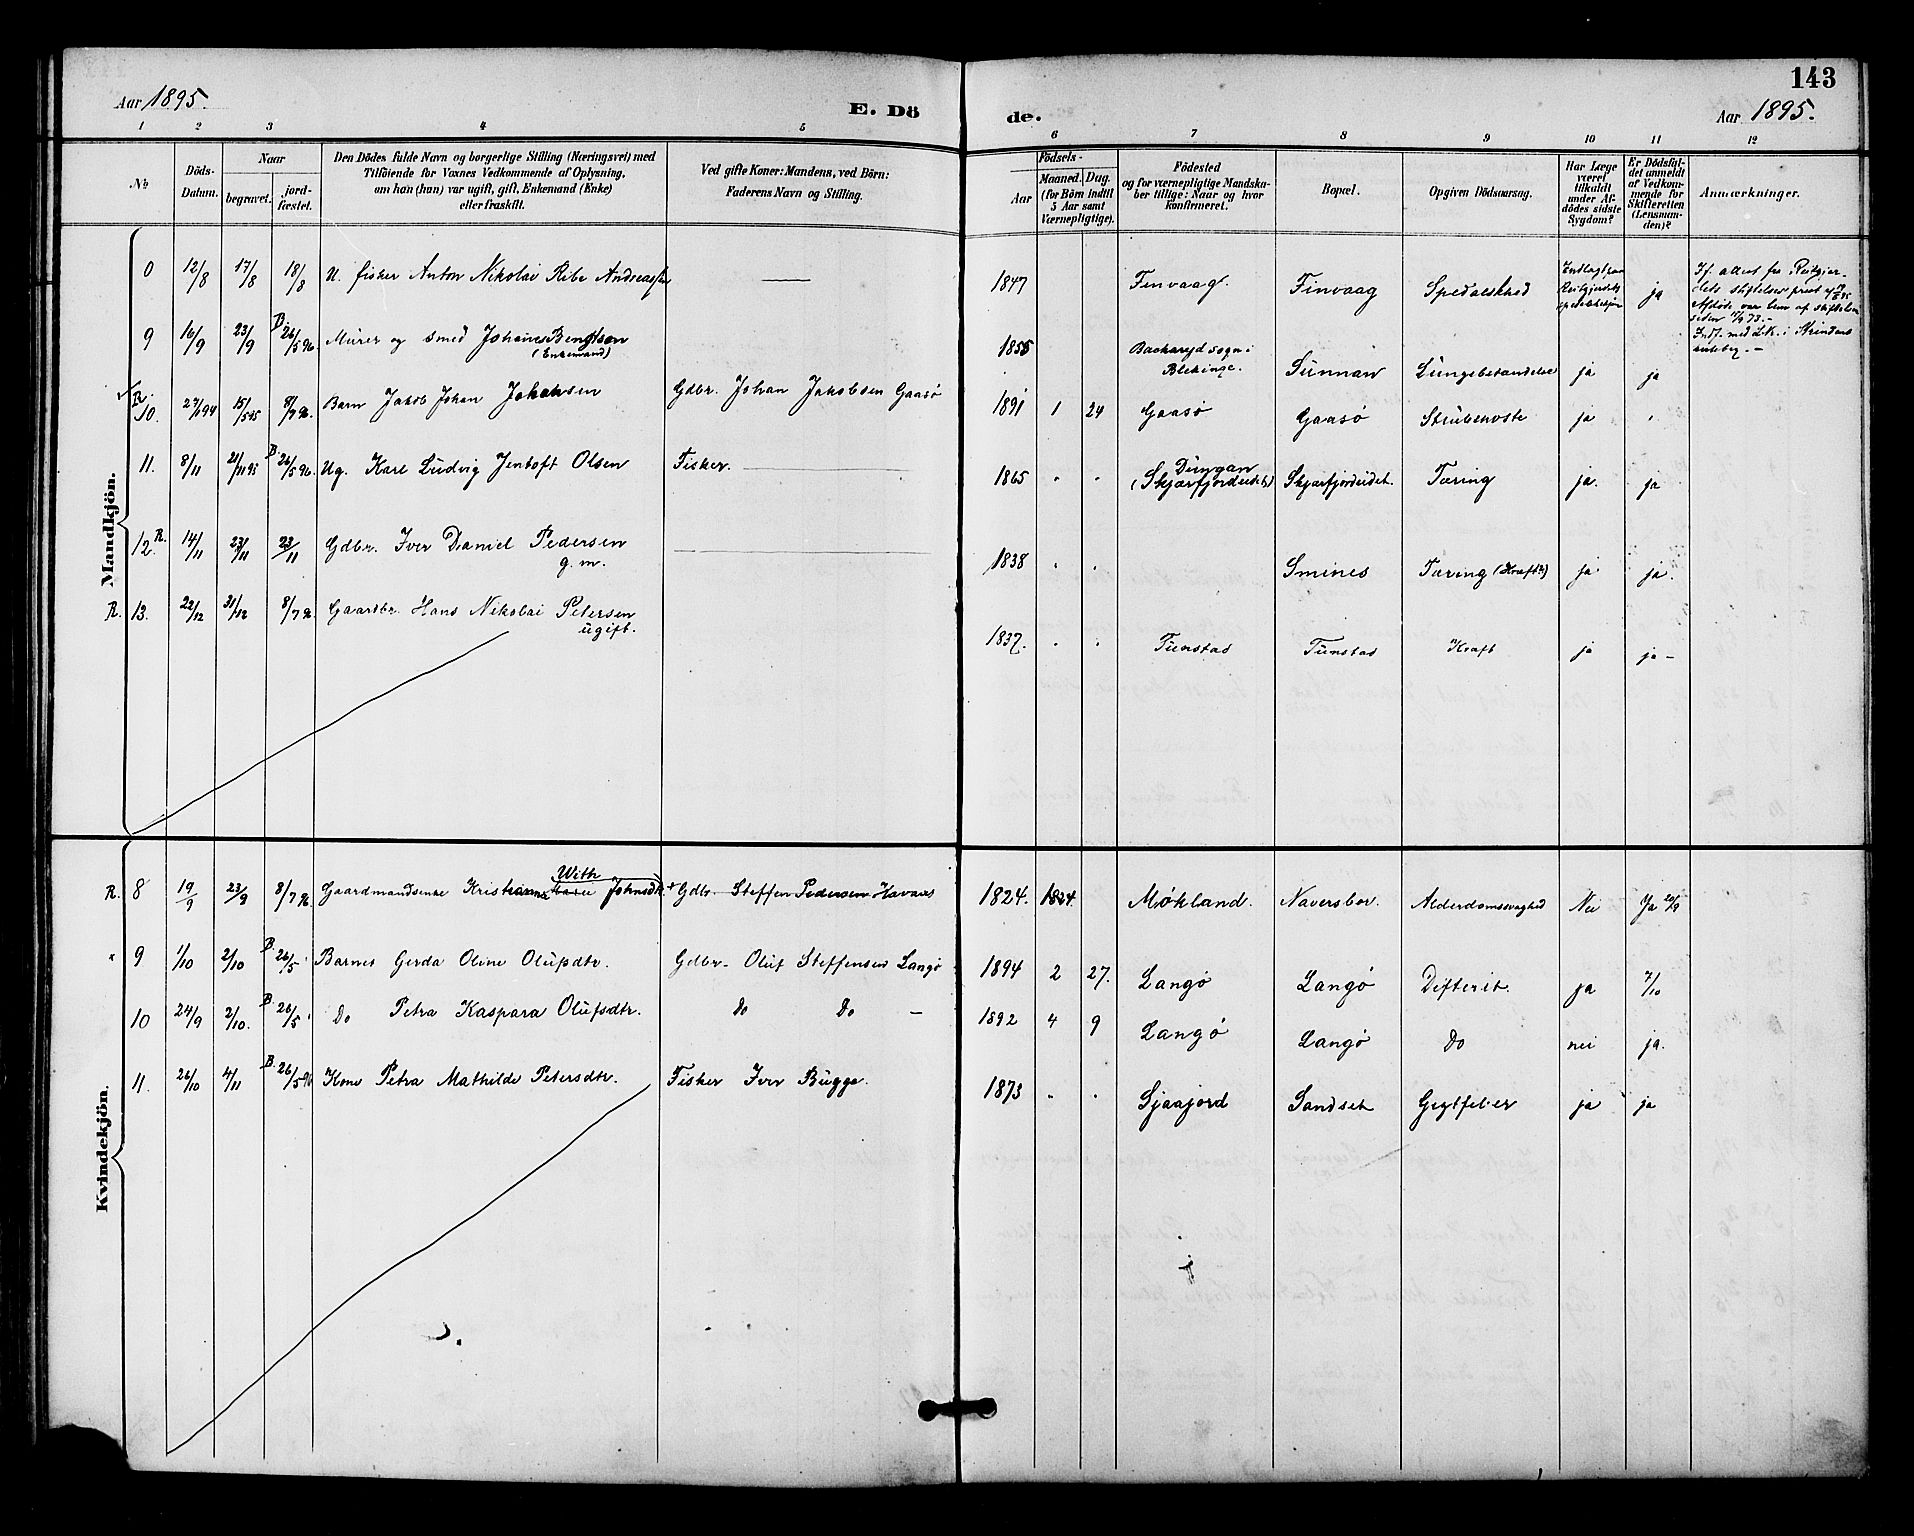 143
Aar 1895.
E. Dö
de.
Aar 1895.
1 2 3 4 5 6 7 8 9 10 11 12
No
Döds-
Datum.
Naar
begravet.
jord-
fæstet.
Den Dödes fulde Navn og borgerlige Stilling (Næringsvei) med
Tilföiende for Voxnes Vedkommende af Oplysning,
om han (hun) var ugift, gift, Enkemand (Enke)
eller fraskilt.
Ved gifte Koner: Mandens, ved Börn:
Faderens Navn og Stilling.
Födsels-
Aar
Maaned. Dag.
(for Börn indtil
5 Aar samt
Værnepligtige).
Födested
og for værnepligtige Mandska-
ber tillige: Naar og hvor
konfirmeret.
Bopæl.
Opgiven Dödsaarsag.
Har Læge
været
tilkaldt
under Af-
dödes sidste
Sygdom?
Er Dödsfal-
det anmeldt
af Vedkom-
mende for
Skifteretten
(Lensman-
den)?
Anmærkninger.
Mandkjön.
0 12/8 17/8 18/8 U. fisker Anton Nikolai Ribe Andreassen — 1847 Finvaag. Finvaag Spedalskhed Indlagt paa Reitgjerdets ja
If. attest fra Reitgjer-
dets stiftelses prest
Afdøde var lem af stiftelsen
siden
9 16/9 23/9 B. 26/5 96. Murer og smed Johannes Bengtson
(Enkemand)
1855 Backaryd sogn i
Blekinge. Sunnan Lungebetændelse ja ja
R. 10. 27/1 94 15/5 95 8/7 96. Barn Jakob Johan Johansen Gdbr. Johan Jakobsen Gaasø 1891 1 24 Gaasø Gaasø Strubehoste ja "
11. 8/11 21/11 95 B. 26/5 96. Ug. Karl Ludvig Jentoft Olsen Fisker. 1865 " " Dungan
(Skjærfjordeidet) Skjærfjordeidet. Tæring ja. ja
12. R. 14/11 23/11 23/11 Gdbr. Iver Daniel Pedersen
g. m.
1838 " " Smines Tæring (Kræft?) ja ja.
R. 13. 22/12 31/12 8/7 96. Gaardbr. Hans Nikolai Petersen
ugift.
1837. " " Tunstad Tunstad Kræft ja ja –
Kvindekjön.
With
R. 8 19/9 23/9 8/7 96. Gaardmandsenke Kristianna Marie Johnsdtr. + Gdbr. Steffen Pedersen Havaas 1824. 1824. Møkland. Naversbor. Alderdomssvaghed Nei Ja 20/9
" 9 1/10 2/10 B. 26/5 Barnet Gerda Oline Olufsdtr. Gdbr. Oluf Steffensen Langø 1894 2 27. Langø Langø Difterit. ja 7/10
10 24/9 2/10. B. 26/5 Do Petra Kaspara Olufsdtr. Do Do – 1892 4 9 Langø Langø Do nei ja.
11. 26/10 4/11 B. 26/5 96 Kone Petra Mathilde Petersdtr. Fisker Iver Bugge. 1873 " " Sjaajord Sandset Gigtfeber ja ja